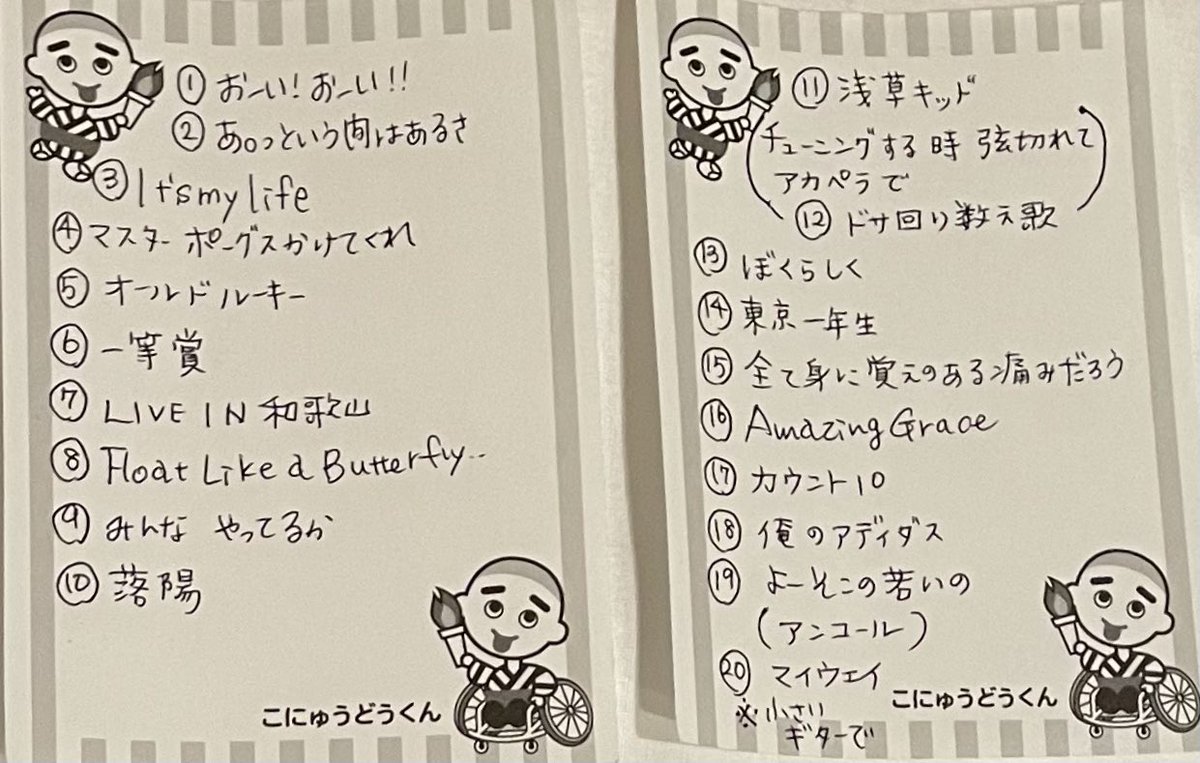 ① おーい！おーい!!
② あ。っという間はあるさ
③ It's my life
④ マスター ポーグスかけてくれ
⑤ オールドルーキー
⑥ 一等賞
⑦ LIVE IN 和歌山
⑧ Float Like a Butterfly..
⑨ みんな やってるか
⑩ 落陽
こにゅうどうくん
⑪ 浅草キッド
(チューニングする時 弦切れて
アカペラで
⑫ ドサ回り数え歌)
⑬ ぼくらしく
⑭ 東京一年生
⑮ 全て身に覚えのある痛みだろう
⑯ Amazing Grace
⑰ カウント10
⑱ 俺のアディダス
⑲ よーそこの若いの
(アンコール)
⑳ マイウェイ
※小さい
ギターで
こにゅうどうくん